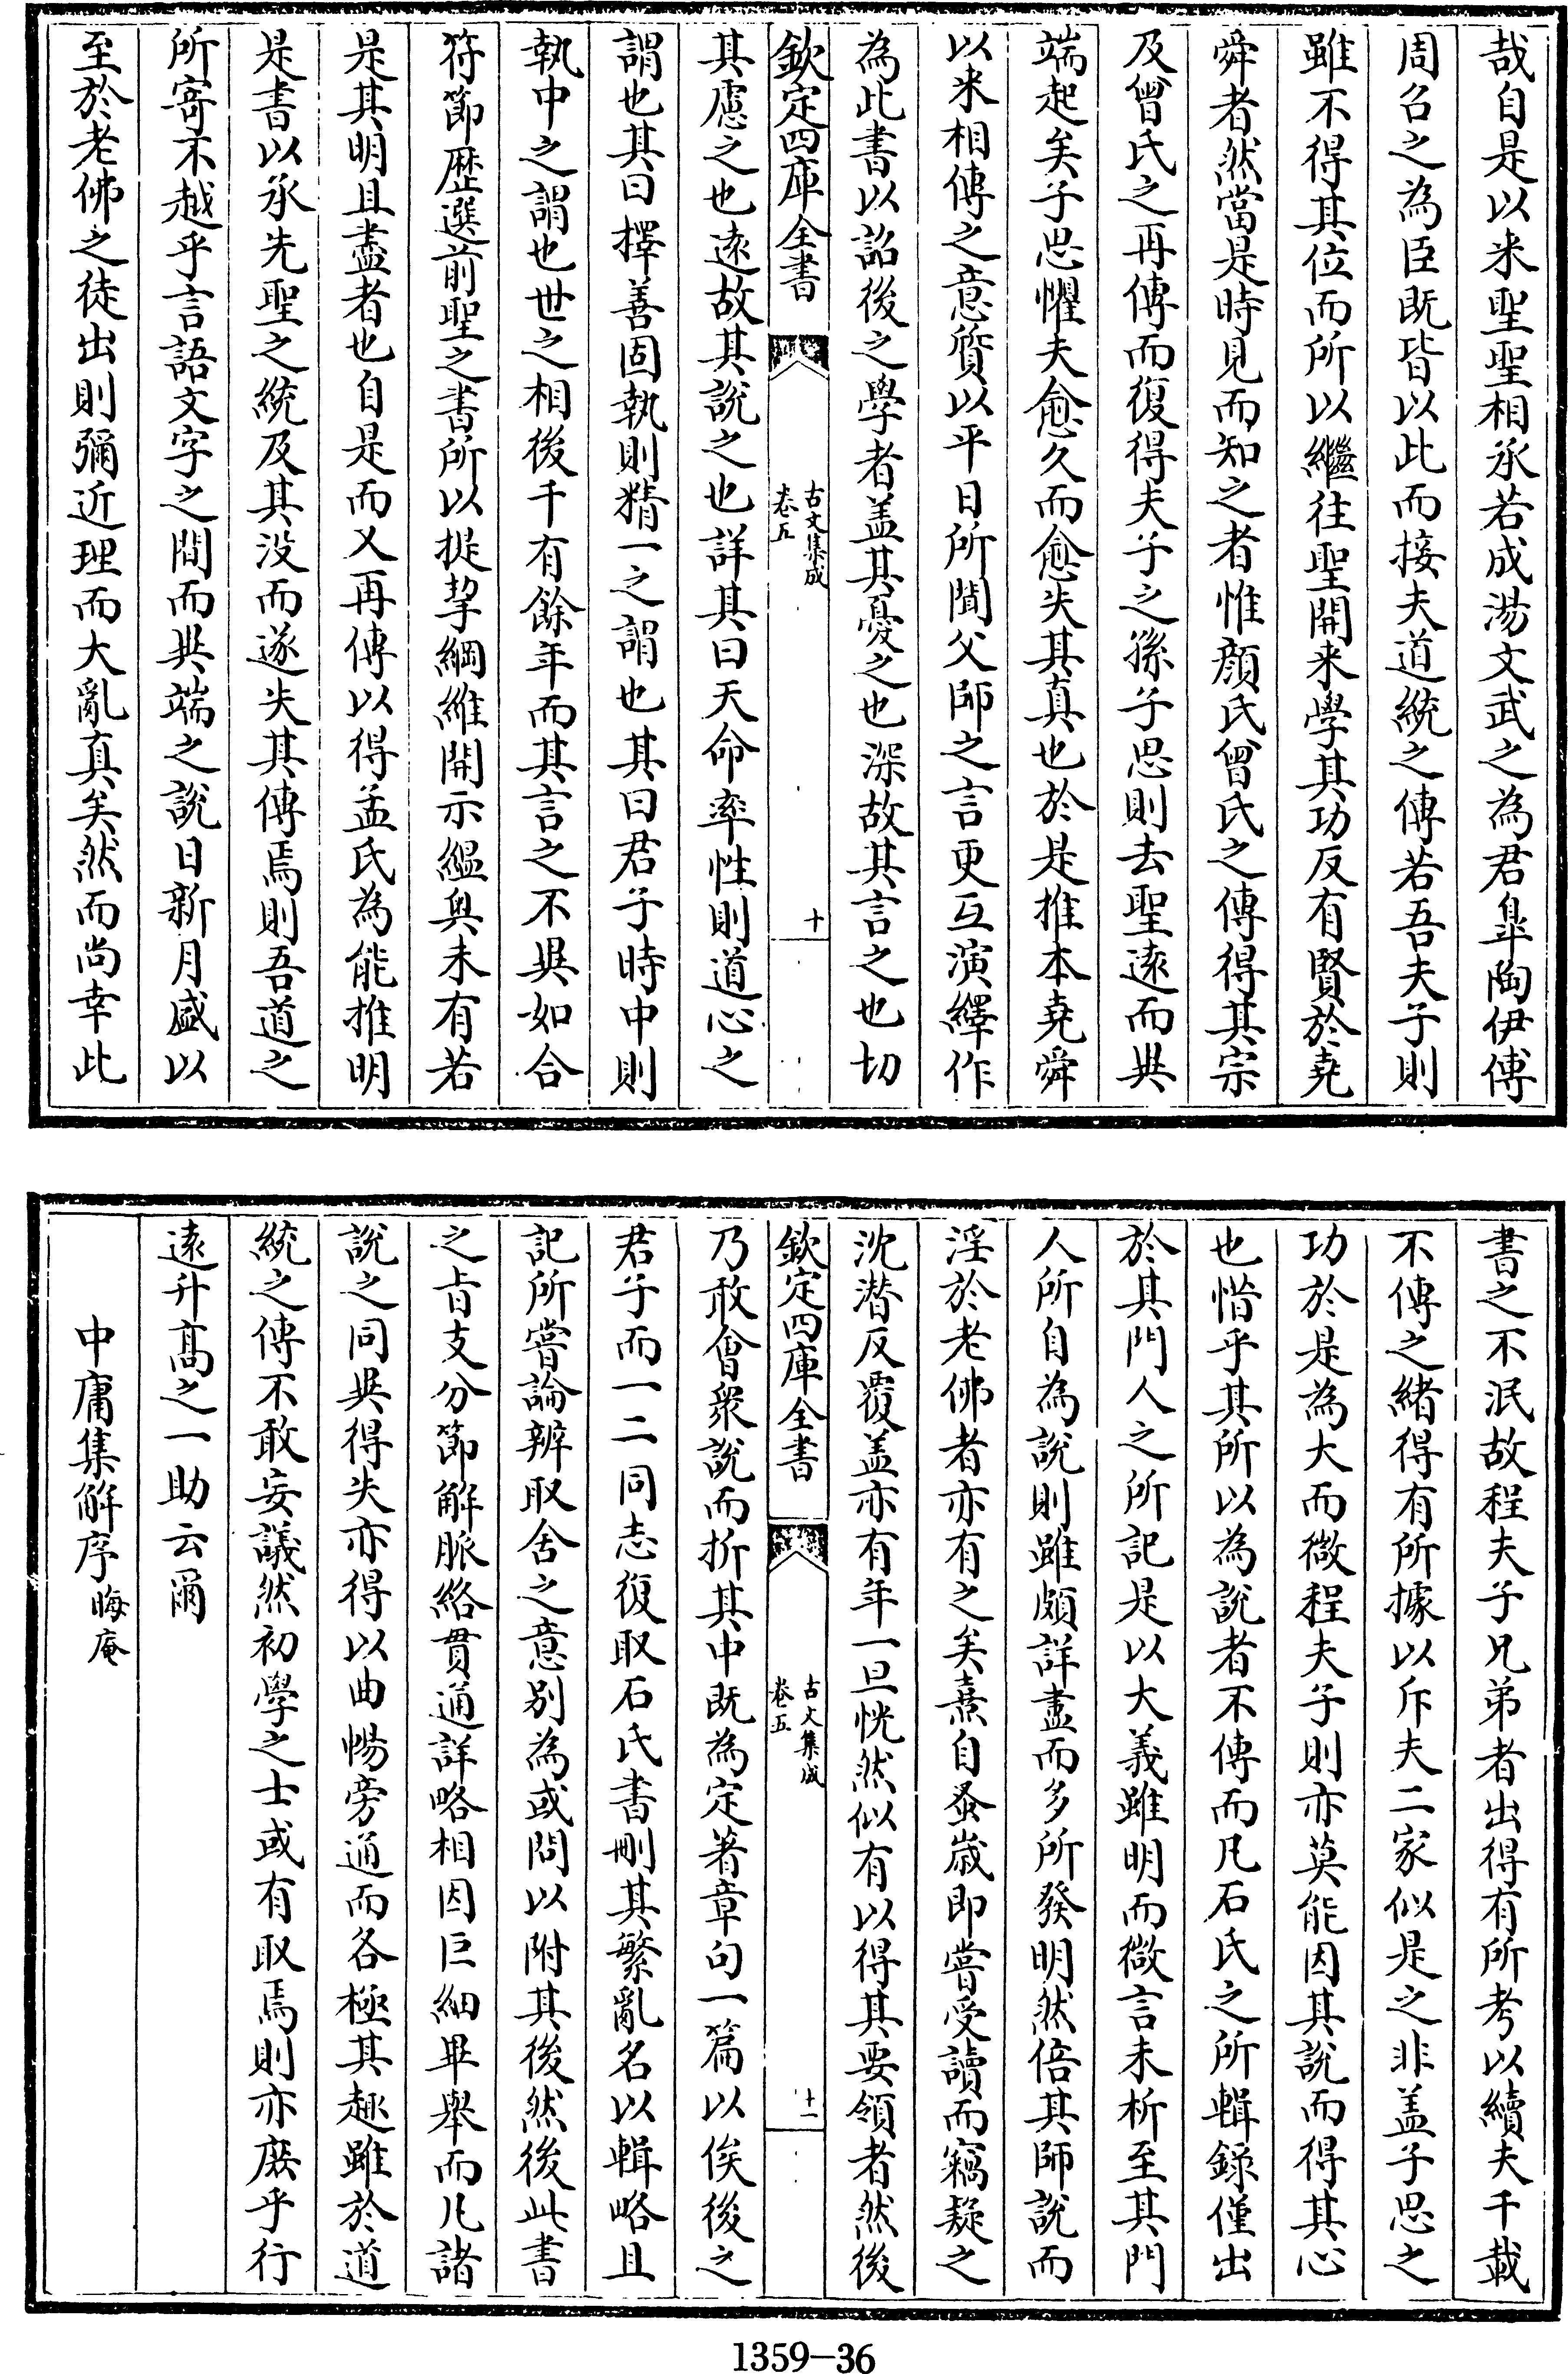 哉自是以来聖聖相承若成湯文武之為君臯陶伊傅
周召之為臣既皆以此而接夫道統之傳若吾夫子則
雖不得其位而所以繼往聖開来學其功反有賢於堯
舜者然當是時見而知之者惟顔氏曾氏之傳得其宗
及曾氏之再傳而復得夫子之孫子思則去聖遠而異
端起矣子思懼夫愈久而愈失其真也於是推本堯舜
以来相傳之意質以平日所聞父師之言更互演繹作
為此書以詔後之學者盖其憂之也深故其言之也切
欽定四庫全書
古文集成
卷五
十
其慮之也遠故其說之也詳其曰天命率性則道心之
謂也其曰擇善固執則精一之謂也其曰君子時中則
執中之謂也世之相後千有餘年而其言之不異如合
符節歴選前聖之書所以提挈綱維開示緼奥未有若
是其明且盡者也自是而又再傳以得孟氏為能推明
是書以承先聖之統及其没而遂失其傳焉則吾道之
所寄不越乎言語文字之間而異端之說日新月盛以
至於老佛之徒出則彌近理而大亂真矣然而尚幸此
書之不泯故程夫子兄弟者出得有所考以續夫千載
不傳之緒得有所據以斥夫二家似是之非盖子思之
功於是為大而微程夫子則亦莫能因其說而得其心
也惜乎其所以為說者不傳而凡石氏之所輯録僅出
於其門人之所記是以大義雖明而微言未析至其門
人所自為說則雖頗詳盡而多所發明然倍其師說而
淫於老佛者亦有之矣熹自蚤歳即嘗受讀而竊疑之
沈潜反覆盖亦有年一旦恍然似有以得其要領者然後
欽定四庫全書
古文集成
卷五
十一
乃敢會衆說而折其中既為定著章句一篇以俟後之
君子而一二同志復取石氏書刪其繁亂名以輯略且
記所嘗論辨取舍之意别為或問以附其後然後此書
之㫖支分節解脈絡貫通詳略相因巨細畢舉而凡諸
說之同異得失亦得以曲暢旁通而各極其趣雖於道
統之傳不敢妄議然初學之士或有取焉則亦庶乎行
遠升髙之一助云爾
中庸集解序 晦庵
1359-36